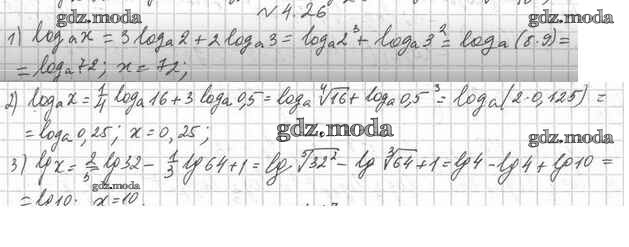 № 4.26
gdz.moda
gdz.moda
1) logₐx = 3 logₐ2 + 2 logₐ3 = logₐ2³ + logₐ3² = logₐ(8·9) =
= logₐ72; x = 72;
2) logₐx = 1/4 logₐ16 + 3 logₐ0,5 = logₐ⁴√16 + logₐ0,5³ = logₐ(2·0,125) =
= logₐ0,25; x = 0,25;
gdz.moda
gdz.moda
3) lg x = 2/5 lg32 - 1/3 lg64 + 1 = lg ⁵√32² - lg ³√64 + 1 = lg4 - lg4 + lg10 =
gdz.moda
= lg10. x = 10.